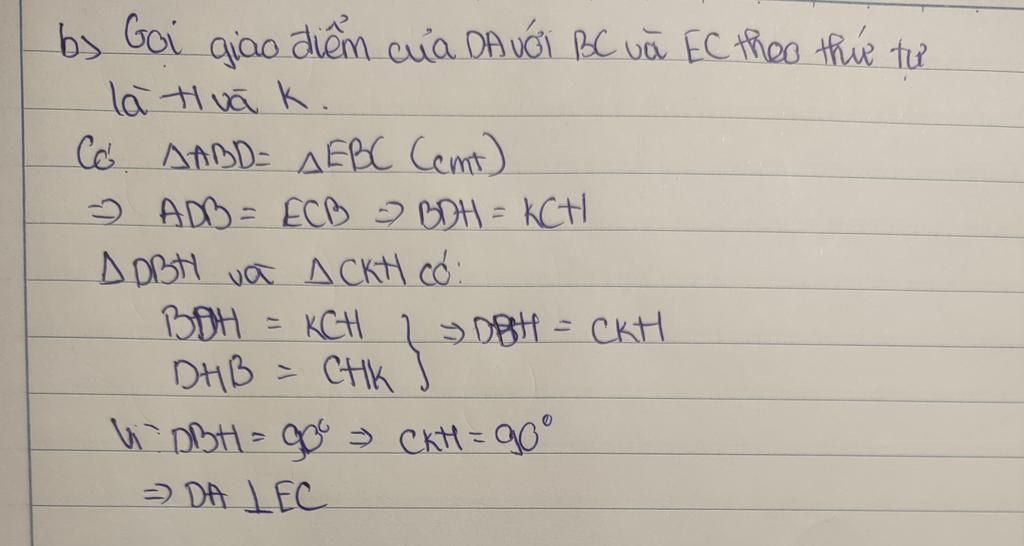 b) Gọi giao điểm của DA với BC và EC theo thứ tự
là H và K.
Có ΔABD = ΔEBC (cmt)
⇒ ADB = ECB ⇒ BDH = KCH
ΔDBH và ΔCKH có:
BDH = KCH } ⇒ DBH = CKH
DHB = CHK
Vì DBH = 90° ⇒ CKH = 90°
⇒ DA ⊥ EC